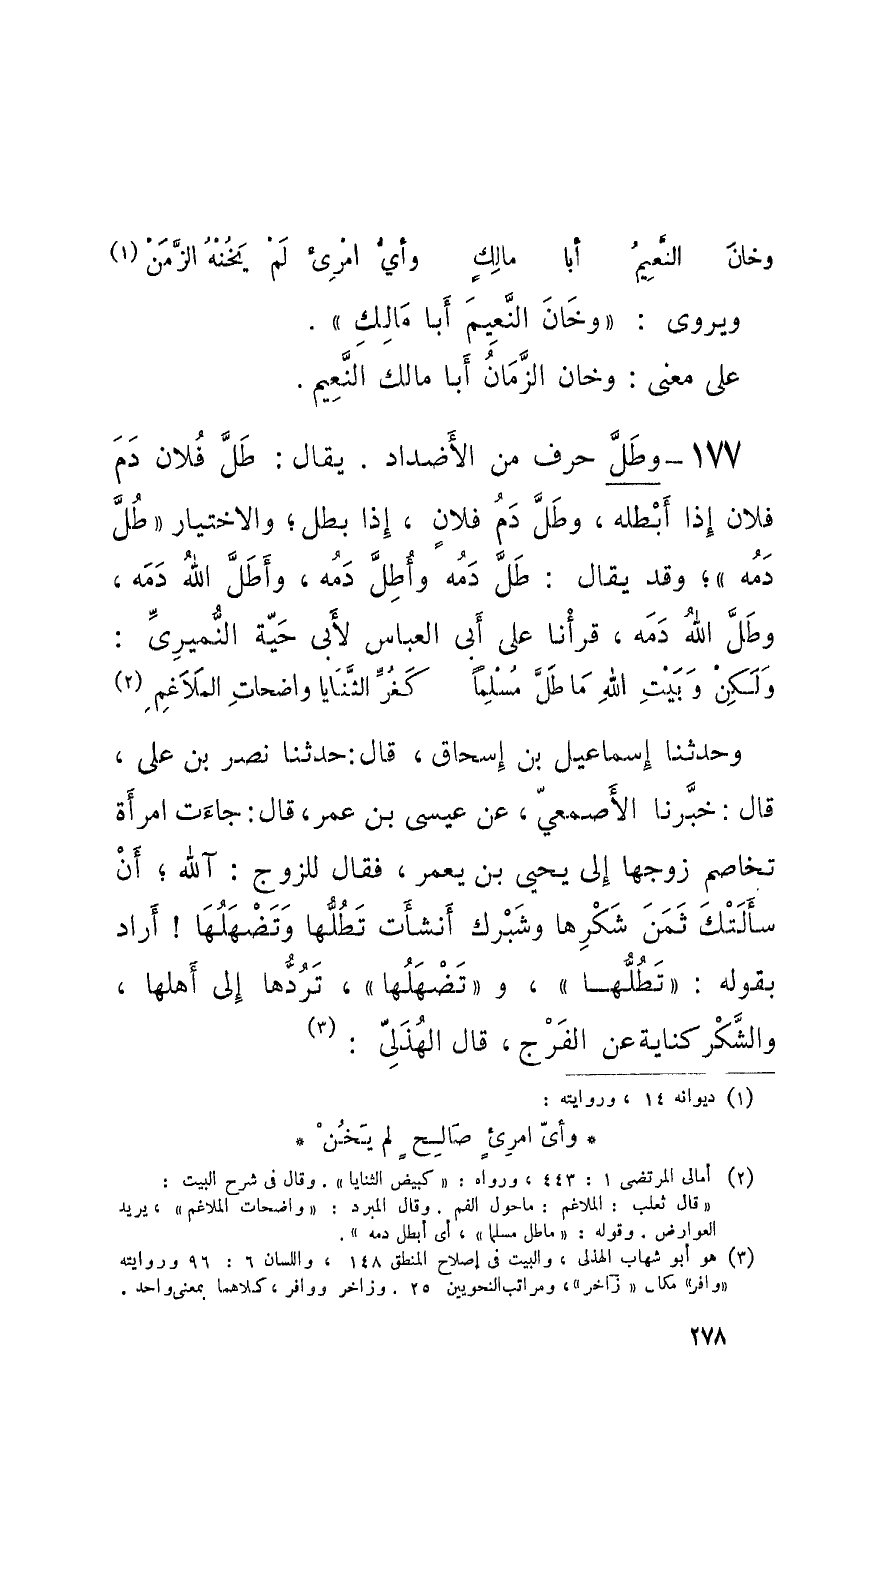 وخانَ النَّعِيمُ أبا مالِكٍ وأيُّ امْرِئٍ لَمْ يَخُنْهُ الزَّمَنْ (١)
ويروى : «وخَانَ النَّعِيمَ أَبا مَالِكِ» .
على معنى : وخان الزَّمَانُ أَبا مالك النَّعِيم .
١٧٧ – وطَلَّ حرف من الأَضداد . يقال : طَلَّ فُلان دَمَ
فلان إِذا أَبْطله ، وطَلَّ دَمُ فلانٍ ، إِذا بطل ؛ والاختيار «طُلَّ
دَمُه » ؛ وقد يقال : طَلَّ دَمُه وأُطِلَّ دَمُه ، وأَطَلَّ اللهُ دَمَه ،
وطَلَّ اللهُ دَمَه ، قرأْنا على أَبى العباس لأَبى حَيّة النُّميرىِّ :
وَلَكِنْ وَبَيْتِ اللهِ مَا طَلَّ مُسْلِماً كَغُرِّ الثَّنَايا واضحاتِ المَلَاغِمِ (٢)
وحدثنا إِسماعيل بن إِسحاق ، قال : حدثنا نصر بن على ،
قال : خبَّرنا الأَصمعيّ ، عن عيسى بن عمر ، قال : جاءَت امرأَة
تخاصم زوجها إِلى يحيى بن يعمر ، فقال للزوج : آلله ؛ أَنْ
سأَلَتْكَ ثَمَنَ شَكْرِها وشَبْرك أَنشأَت تَطُلُّها وَتَضْهَلُهَا ! أَراد
بقوله : «تَطُلُّهـا » ، و «تَضْهَلُها» ، تَرُدُّها إِلى أَهلها ،
والشَّكْر كناية عن الفَرْج ، قال الهُذَلىّ : (٣)
(١) ديوانه ١٤ ، وروايته :
* وأىّ امرِئٍ صَالِحٍ لم يَخُنْ *
(٢) أمالى المرتضى ١ : ٤٤٣ ، ورواه : « كبيض الثنايا » . وقال فى شرح البيت :
« قال ثعلب : الملاغم : ماحول الفم . وقال المبرد : « واضحات الملاغم » ، يريد
العوارض . وقوله : « ماطل مسلما » ، أى أبطل دمه » .
(٣) هو أبو شهاب الهذلى ، والبيت فى إصلاح المنطق ١٤٨ ، واللسان ٦ : ٩٦ وروايته
«وافر» مكان « زاخر» ، ومراتب النحويين ٢٥ . وزاخر ووافر ، كلاهما بمعنى واحد .
٢٧٨